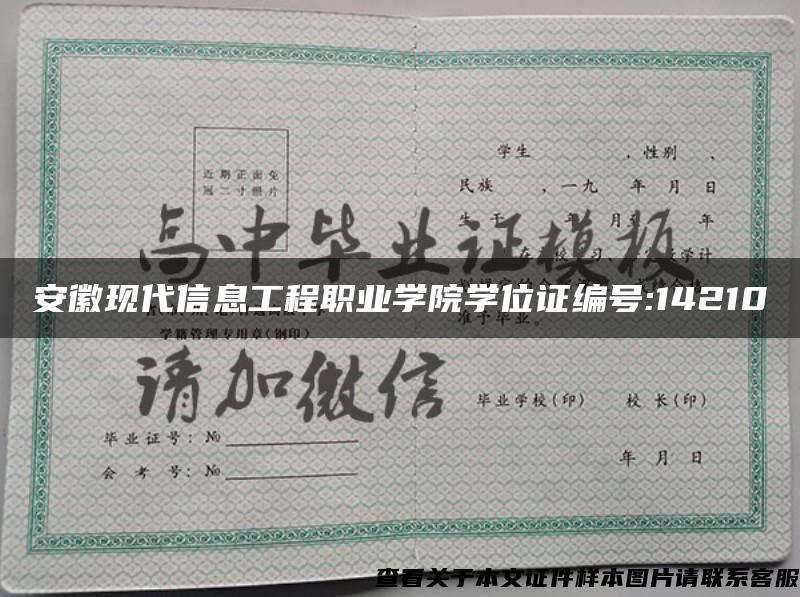 近期正面免
冠二寸照片
学籍管理专用章(钢印)
毕业证号:№
会考号:№
学生 ,性别 、
民族 ,一九 年 月 日
生于 年 月至 年
准予毕业。
毕业学校(印) 校长(印)
年 月 日
高中毕业证模板
请加微信
安徽现代信息工程职业学院学位证编号:14210
查看关于本文证件样本图片请联系客服